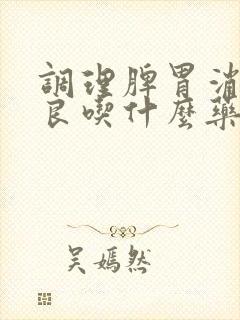 調理脾胃消
良喫什麼藥
吳嫣然